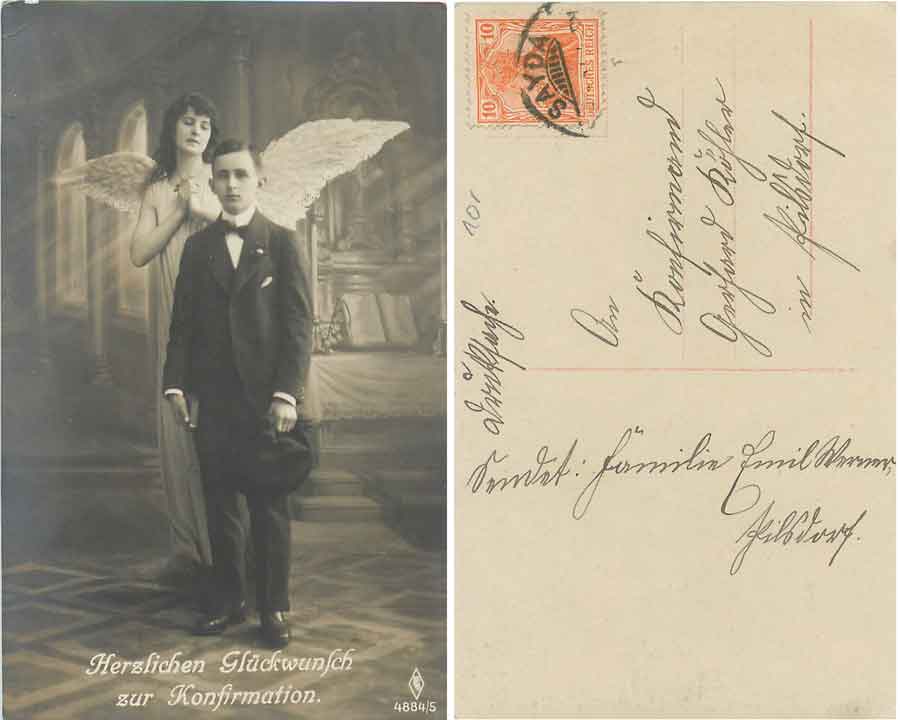 Herzlichen Glückwunsch
zur Konfirmation.
4884/5
10
10
DEUTSCHES REICH
SAYDA
10.
Drucksache.
An
Konfirmand
Gerhard Köhler
in Pilsdorf.
Sendet: Familie Emil Werner,
Pilsdorf.